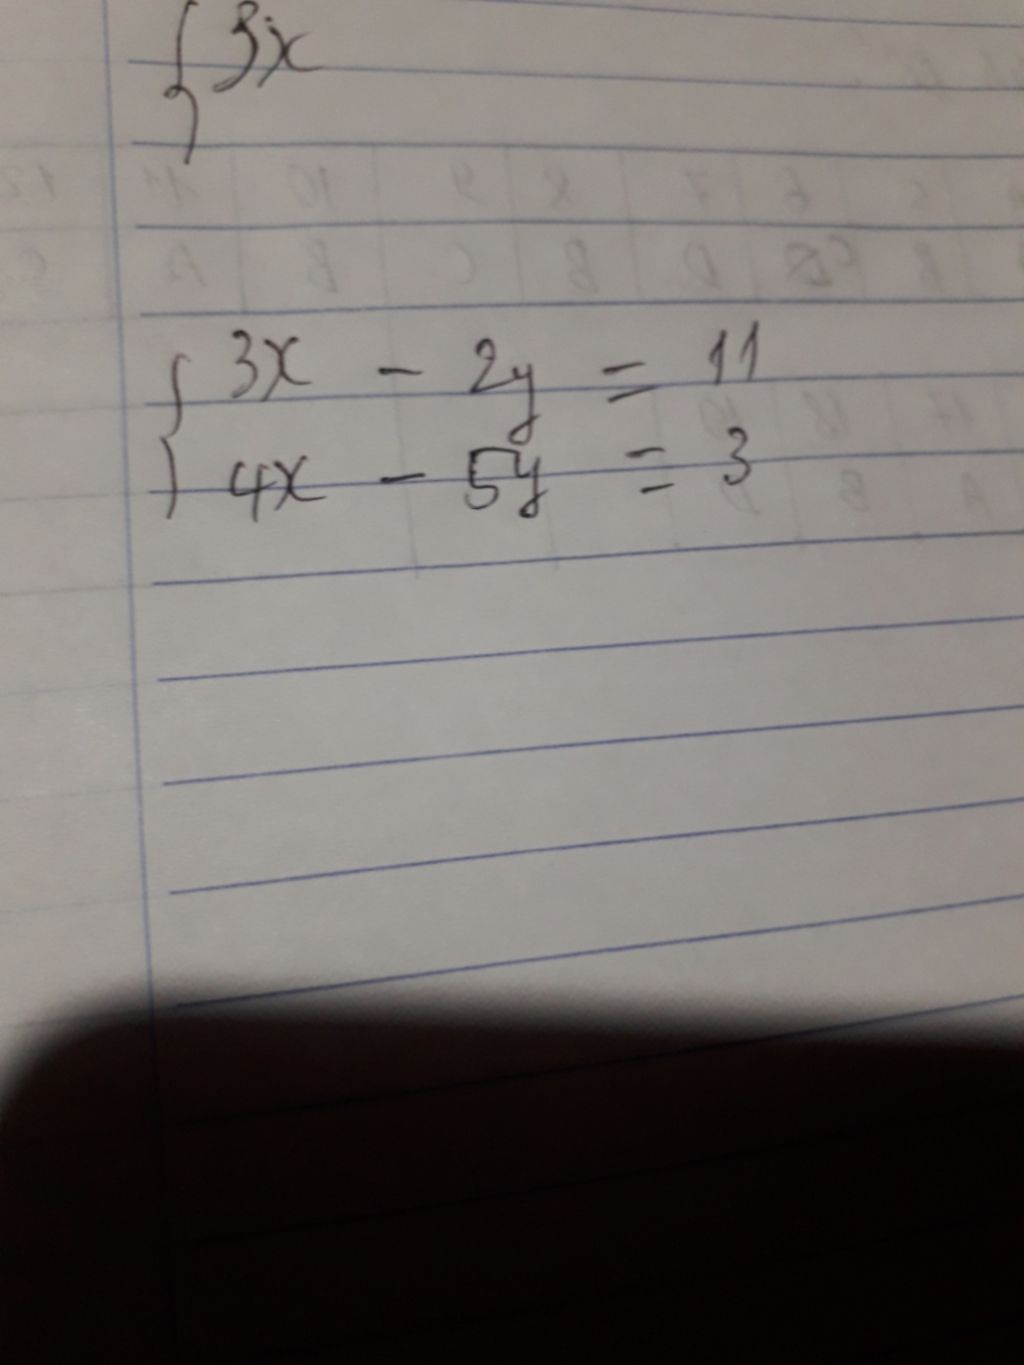 { 3x
{ 3x - 2y = 11
4x - 5y = 3